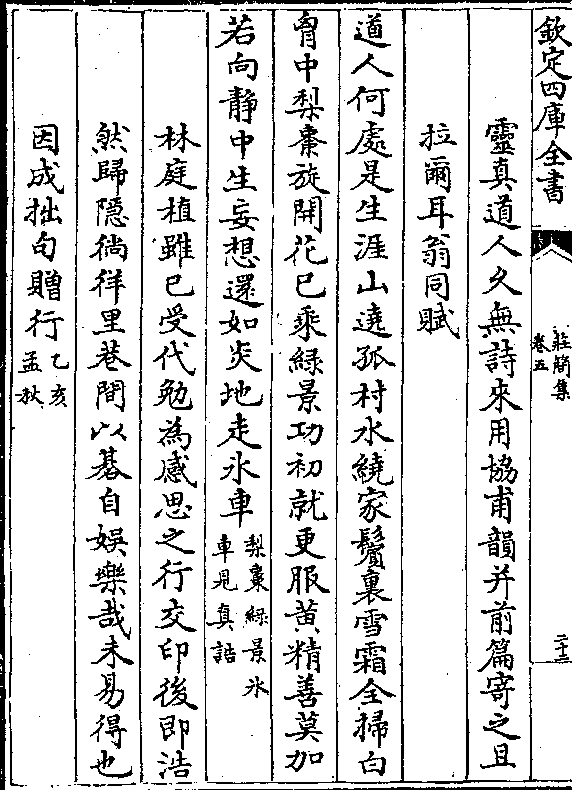 欽定四庫全書
莊簡集
卷五
二十三
靈真道人久無詩來用協甫韻并前篇寄之且
拉爾耳翁同賦
道人何處是生涯山遶孤村水繞家鬢裏雪霜全掃白
胷中梨棗旋開花已乘緑景功初就更服黄精善莫加
若向静中生妄想還如炎地走氷車梨棗緑景氷
車見真誥
林庭植雖已受代勉為感思之行交印後即浩
然歸隱徜徉里巷間以碁自娯樂哉未易得也
因成拙句贈行乙亥
孟秋